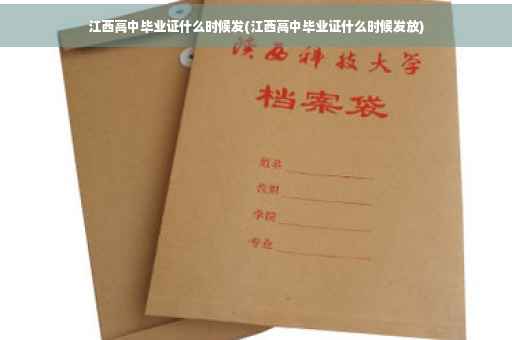 江西高中毕业证什么时候发(江西高中毕业证什么时候发放)
陕西科技大学
档案袋
学院
专业